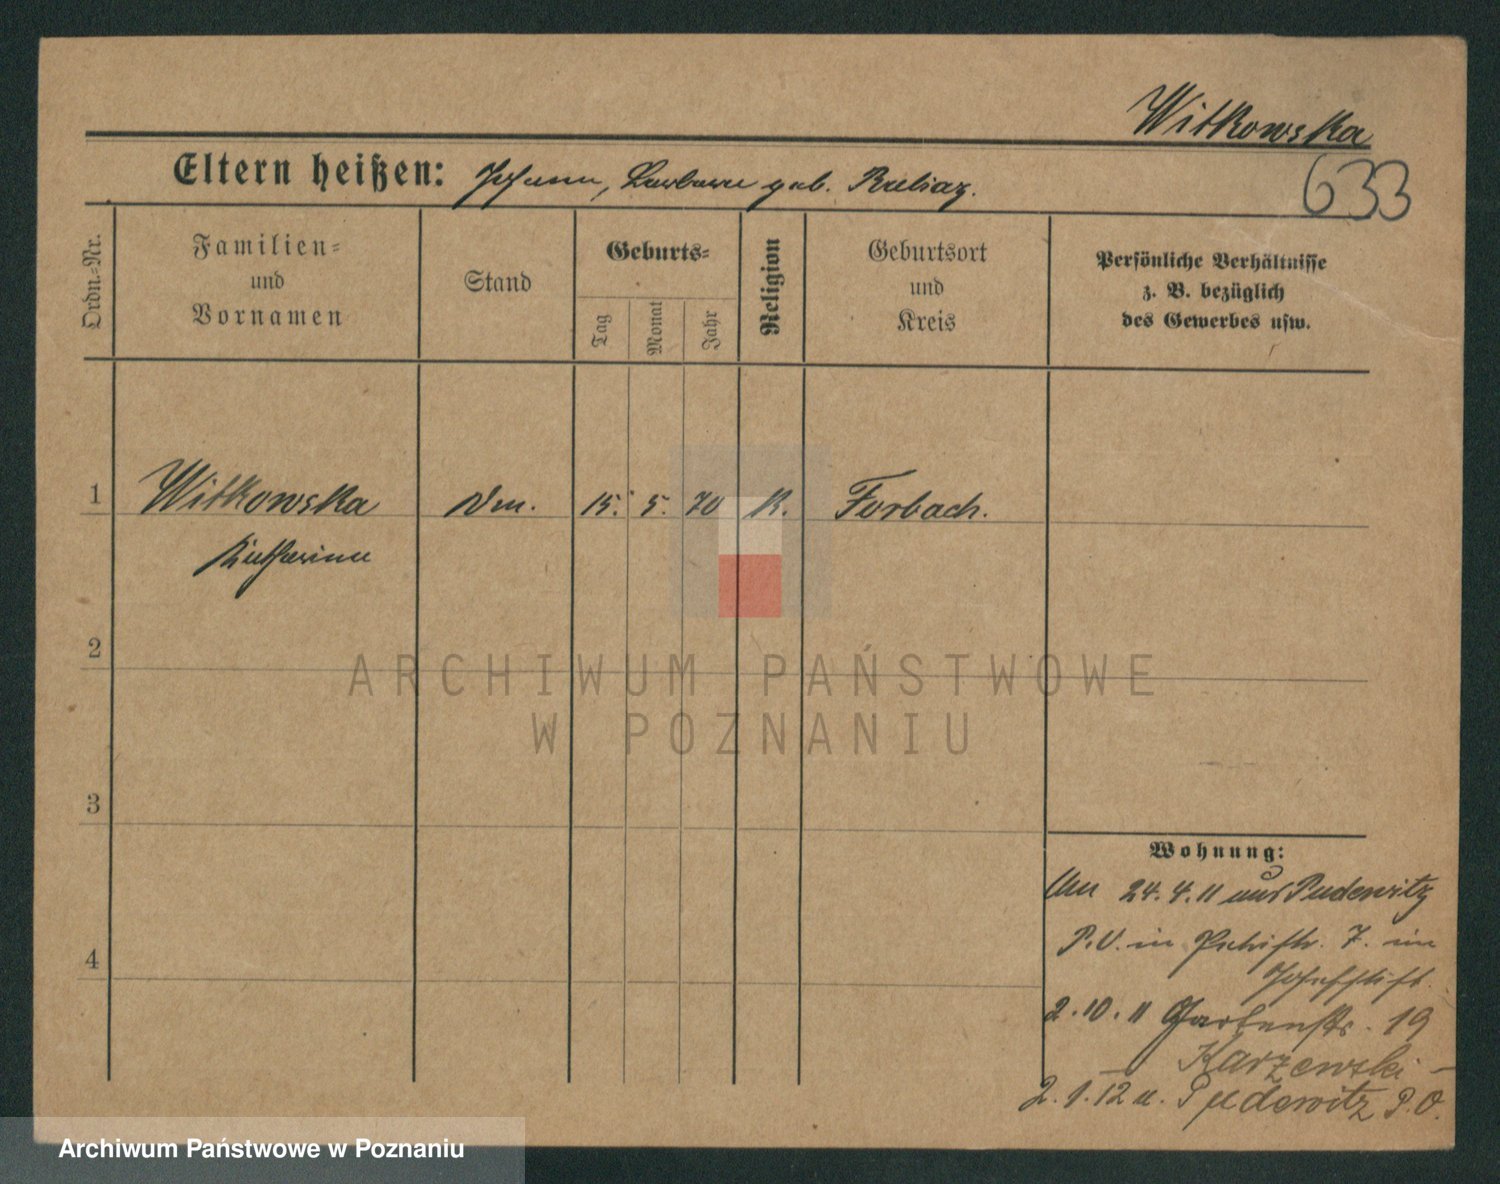 Witkowska
633
Eltern heißen: Johann, Barbara geb.
Ordn.=Nr.
Familien=
und
Vornamen
Stand
Geburts=
Tag
Monat
Jahr
Religion
Geburtsort
und
Kreis
Persönliche Verhältnisse
z. B. bezüglich
des Gewerbes usw.
1 Witkowska 15. 5. 70 K. Forbach.
Katharina
2
ARCHIWUM PAŃSTWOWE
W POZNANIU
3
Wohnung:
24. 4. 11 aus Pudewitz
4
P.O. in 7. im
Josefstift.
2. 10. 11 Gartenstr. 19
Karzewski -
2. 1. 12 n. Pudewitz P.O.
Archiwum Państwowe w Poznaniu